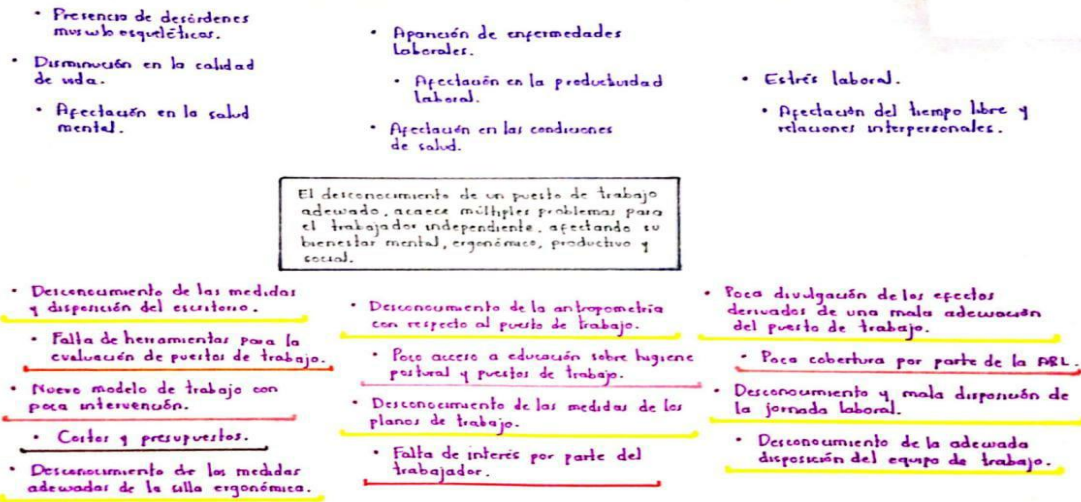 • Presencia de desórdenes
musculo esqueléticos.
• Disminución en la calidad
de vida.
• Afectación en la salud
mental.
• Aparición de enfermedades
Laborales.
• Afectación en la productividad
laboral.
• Afectación en las condiciones
de salud.
• Estrés laboral.
• Afectación del tiempo libre y
relaciones interpersonales.
El desconocimiento de un puesto de trabajo
adecuado, acaece múltiples problemas para
el trabajador independiente, afectando su
bienestar mental, ergonómico, productivo y
social.
• Desconocimiento de las medidas
y disposición del escritorio.
• Falta de herramientas para la
evaluación de puestos de trabajo.
• Nuevo modelo de trabajo con
poca intervención.
• Costos y presupuestos.
• Desconocimiento de las medidas
adecuadas de la silla ergonómica.
• Desconocimiento de la antropometría
con respecto al puesto de trabajo.
• Poco acceso a educación sobre higiene
postural y puestos de trabajo.
• Desconocimiento de las medidas de los
planos de trabajo.
• Falta de interés por parte del
trabajador.
• Poca divulgación de los efectos
derivados de una mala adecuación
del puesto de trabajo.
• Poca cobertura por parte de la ARL.
• Desconocimiento y mala disposición de
la jornada laboral.
• Desconocimiento de la adecuada
disposición del equipo de trabajo.